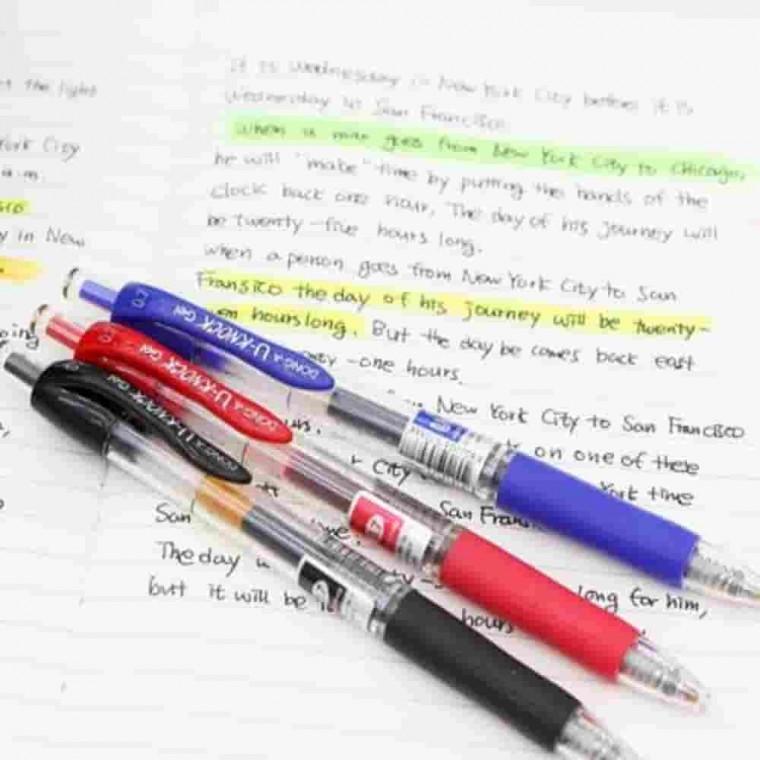 t the light
York City
a.m.
sco
y in New
It is Wednesday in New York City before it is
Wednesday in San Francisco.
When a man goes from New York City to Chicago,
he will "make" time by putting the hands of the
clock back one hour. The day of his journey will
be twenty-five hours long.
When a person goes from New York City to San
Fransico the day of his journey will be twenty-
hours long. But the day be comes back east
-one hours.
New York City to San Francisco
on one of these
City York time
San Fran
San
The day
long for him,
but it will be
hours
DONG-A U-KNOCK Gel
DONG-A U-KNOCK Gel
DONG-A U-KNOCK Gel